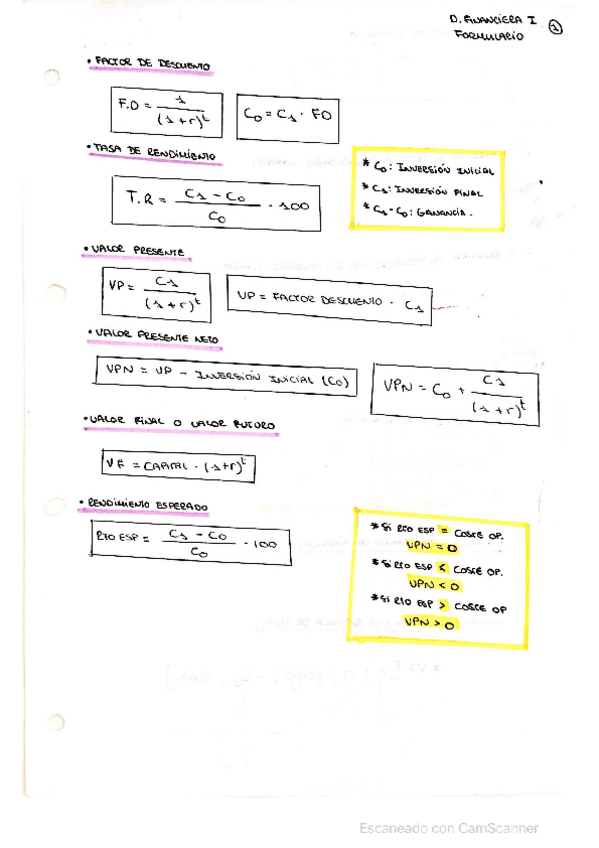 D. FINANCIERA I ①
FORMULARIO
• FACTOR DE DESCUENTO
F.D = 1 / (1+r)^t
C₀ = C₁ · FD
• TASA DE RENDIMIENTO
T.R = (C₁ - C₀) / C₀ · 100
* C₀: INVERSIÓN INICIAL
* C₁: INVERSIÓN FINAL
* C₁ - C₀: GANANCIA.
• VALOR PRESENTE
VP = C₁ / (1+r)^t
VP = FACTOR DESCUENTO · C₁
• VALOR PRESENTE NETO
VPN = VP - INVERSIÓN INICIAL (C₀)
VPN = C₀ + C₁ / (1+r)^t
• VALOR FINAL O VALOR FUTURO
VF = CAPITAL · (1+r)^t
• RENDIMIENTO ESPERADO
RTO ESP = (C₁ - C₀) / C₀ · 100
* Si RTO ESP = COSTE OP.
VPN = 0
* Si RTO ESP < COSTE OP.
VPN < 0
* Si RTO ESP > COSTE OP
VPN > 0
Escaneado con CamScanner